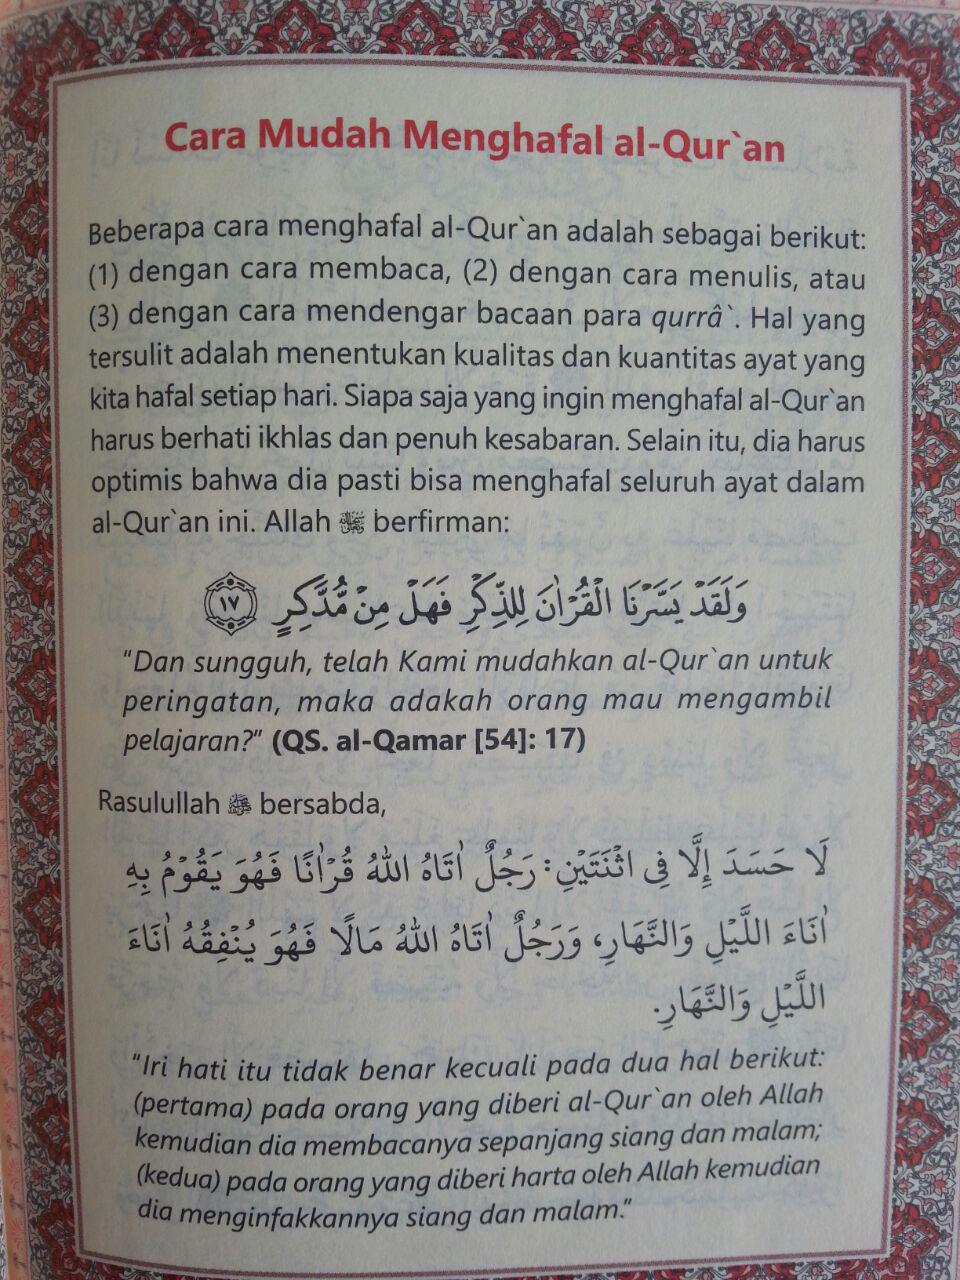 Cara Mudah Menghafal al-Qur`an
Beberapa cara menghafal al-Qur`an adalah sebagai berikut:
(1) dengan cara membaca, (2) dengan cara menulis, atau
(3) dengan cara mendengar bacaan para qurrâ`. Hal yang
tersulit adalah menentukan kualitas dan kuantitas ayat yang
kita hafal setiap hari. Siapa saja yang ingin menghafal al-Qur`an
harus berhati ikhlas dan penuh kesabaran. Selain itu, dia harus
optimis bahwa dia pasti bisa menghafal seluruh ayat dalam
al-Qur`an ini. Allah berfirman:
وَلَقَدْ يَسَّرْنَا الْقُرْاٰنَ لِلذِّكْرِ فَهَلْ مِنْ مُّدَّكِرٍ ١٧
"Dan sungguh, telah Kami mudahkan al-Qur`an untuk
peringatan, maka adakah orang mau mengambil
pelajaran?" (QS. al-Qamar [54]: 17)
Rasulullah ﷺ bersabda,
لَا حَسَدَ إِلَّا فِى اثْنَتَيْنِ: رَجُلٌ اٰتَاهُ اللهُ قُرْاٰنًا فَهُوَ يَقُوْمُ بِهِ
اٰنَاءَ اللَّيْلِ وَالنَّهَارِ، وَرَجُلٌ اٰتَاهُ اللهُ مَالًا فَهُوَ يُنْفِقُهُ اٰنَاءَ
اللَّيْلِ وَالنَّهَارِ.
"Iri hati itu tidak benar kecuali pada dua hal berikut:
(pertama) pada orang yang diberi al-Qur`an oleh Allah
kemudian dia membacanya sepanjang siang dan malam;
(kedua) pada orang yang diberi harta oleh Allah kemudian
dia menginfakkannya siang dan malam."